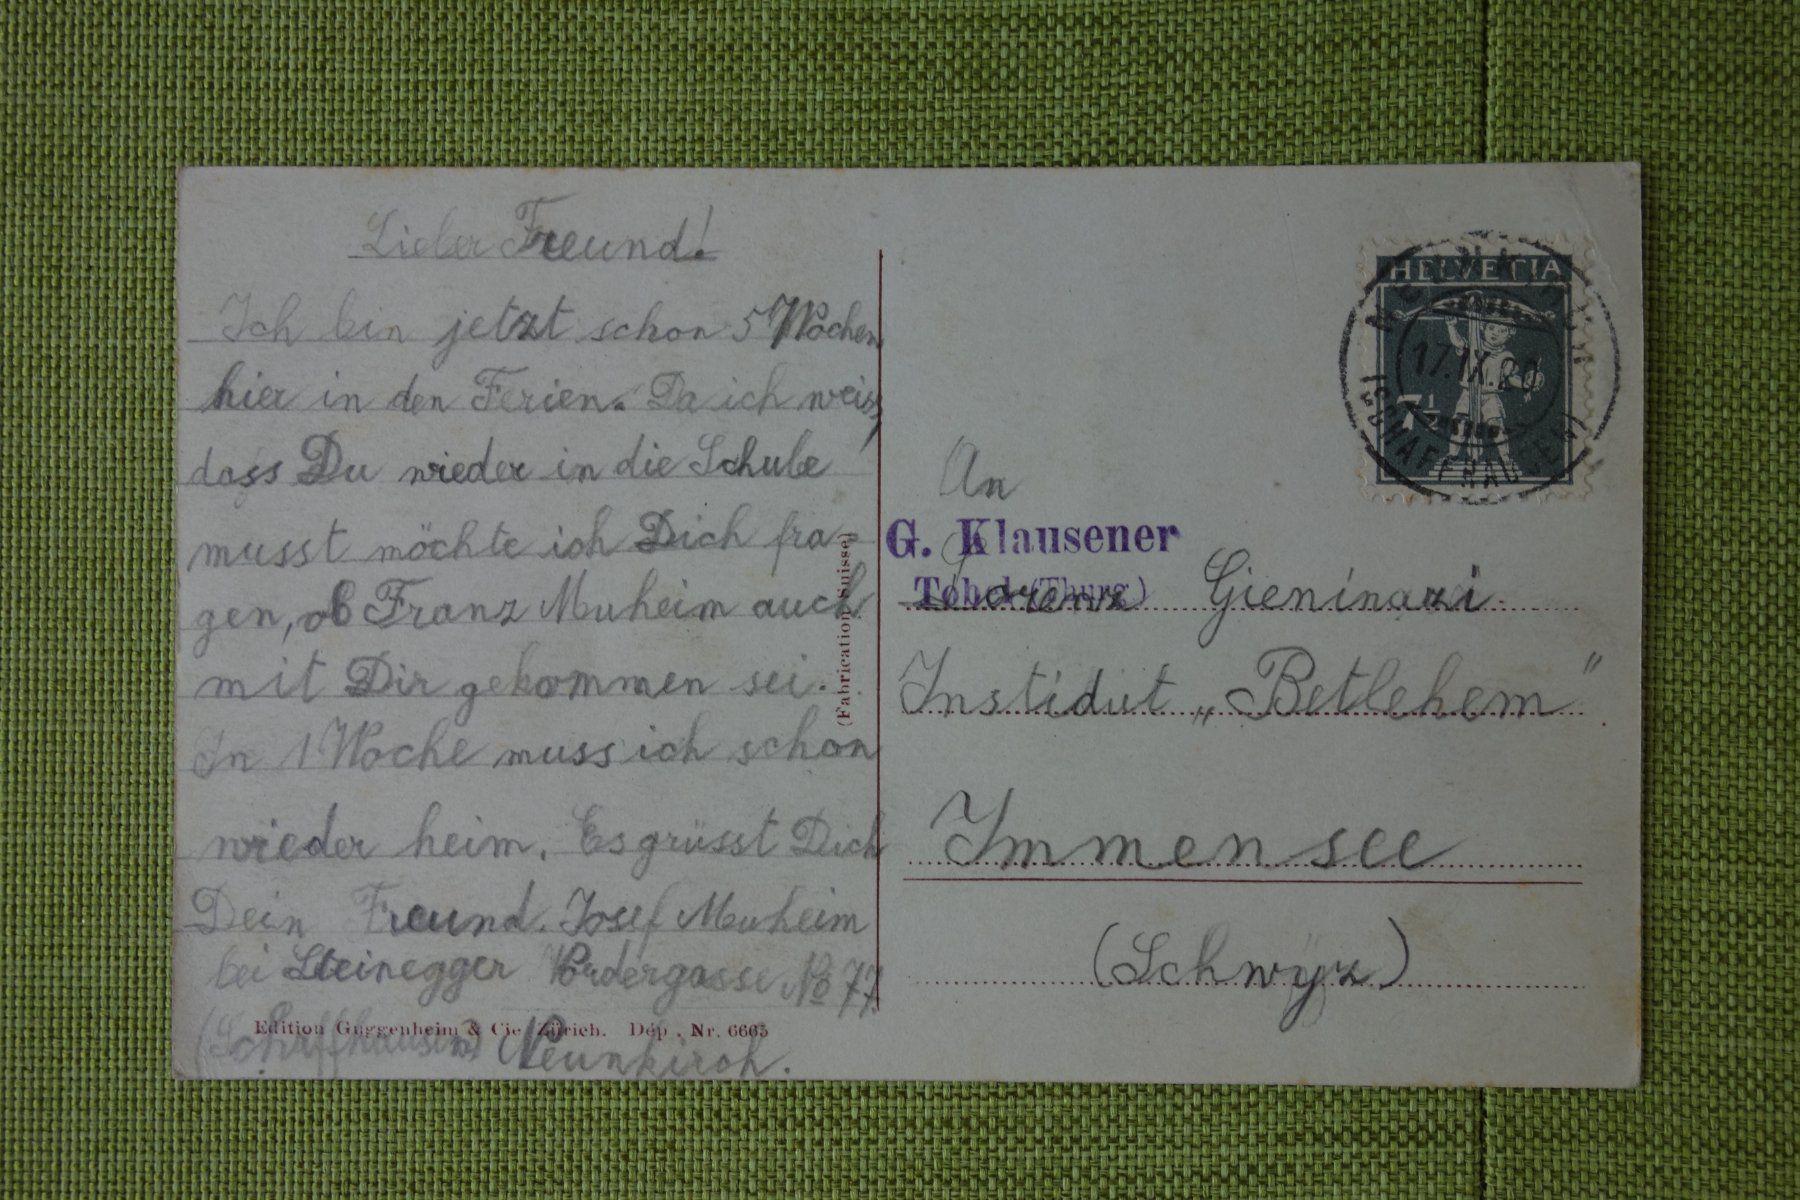 Lieber Freund!
Ich bin jetzt schon 5 Wochen
hier in den Ferien. Da ich weiss,
dass Du wieder in die Schule
musst möchte ich Dich fra-
gen, ob Franz Muheim auch
mit Dir gekommen sei.
In 1 Woche muss ich schon
wieder heim. Es grüsst Dich
Dein Freund. Josef Muheim
bei Steinegger Vordergasse No 77
(Schaffhausen) Neunkirch.
Edition Guggenheim & Cie, Zürich. Dép. Nr. 6665
(Fabrication Suisse)
HELVETIA
7½
NEUNKIRCH
17.IX.20
(SCHAFFHAUSEN)
An
G. Klausener
Tobel (Thurg)
Lorenz Gieninazi
Instidut „Betlehem"
Immensee
(Schwÿz)